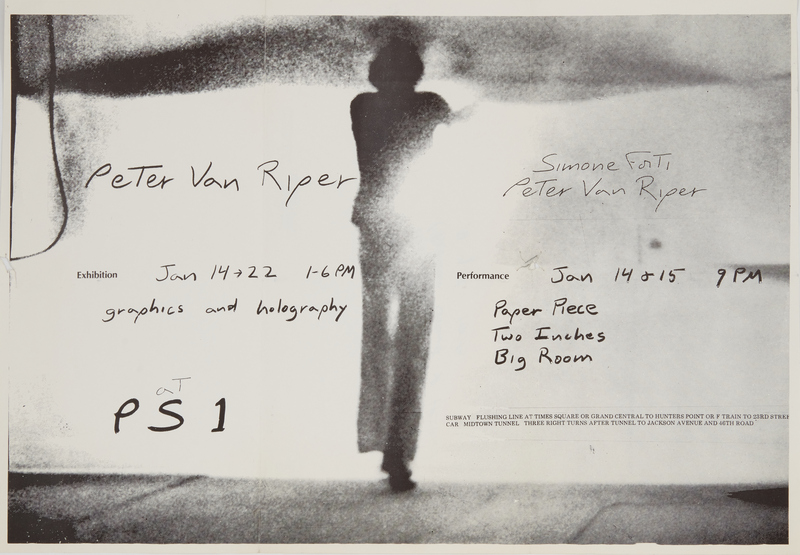 Peter Van Riper
Exhibition Jan 14→22 1-6 PM
graphics and holography
at
PS 1
Simone Forti
Peter Van Riper
Performance Jan 14 & 15 9 PM
Paper Piece
Two Inches
Big Room
SUBWAY FLUSHING LINE AT TIMES SQUARE OR GRAND CENTRAL TO HUNTERS POINT OR F TRAIN TO 23RD STREE
CAR MIDTOWN TUNNEL THREE RIGHT TURNS AFTER TUNNEL TO JACKSON AVENUE AND 46TH ROAD